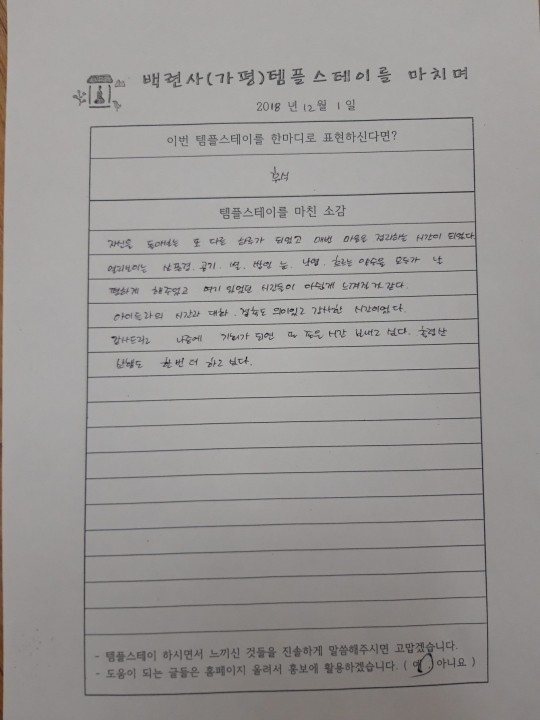 백련사(가평)템플스테이를 마치며
2018 년 12월 1일
이번 템플스테이를 한마디로 표현하신다면?
휴식
템플스테이를 마친 소감
자신을 돌아보는 또 다른 하루가 되었고 마음도 정리하는 시간이 되었다.
공기. 별. 낙엽. 흐르는 약수물 모두가 날
편하게 해주었고 여기 있었던 시간들이 아쉽게 느껴져가 같다.
시간과 대화. 접촉도 의미있고 감사한 시간이었다.
감사드리고 나중에 기회가 되면 또 좋은 시간 보내고 싶다.
한번 더 하고 싶다.
- 템플스테이 하시면서 느끼신 것들을 진솔하게 말씀해주시면 고맙겠습니다.
- 도움이 되는 글들은 홈페이지 올려서 홍보에 활용하겠습니다. ( 예 아니요 )